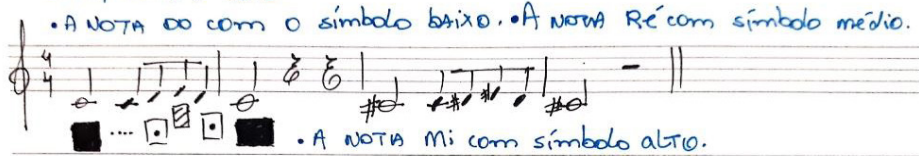 • A NOTA DO com o símbolo bAixo. • A NOTA Ré com símbolo médio.
4
4
• A NOTA Mi com símbolo ALTO.